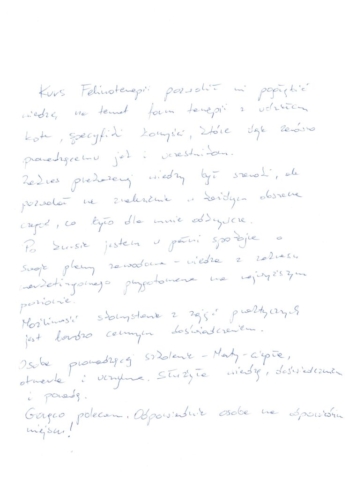 Kurs Felinoterapii pozwolił mi pogłębić
wiedzę na temat form terapii z udziałem
kota, specyfiki korzyści, które daje zarówno
prowadzącemu jak i uczestnikom.
Zakres przekazanej wiedzy był szeroki, ale
pozwolił na znalezienie w każdym obszarze
części, co było dla mnie odkrywcze.
Po kursie jestem w pełni spokojna o
swoje plany zawodowe - wiedza z zakresu
marketingowego przygotowana na najwyższym
poziomie.
Możliwość skorzystania z zajęć praktycznych
jest bardzo cennym doświadczeniem.
Osoba prowadząca szkolenie - ciepła,
otwarta i uczynna. Służyła wiedzą, doświadczeniem
i poradą.
Gorąco polecam. Odpowiednia osoba na odpowiednim
miejscu!